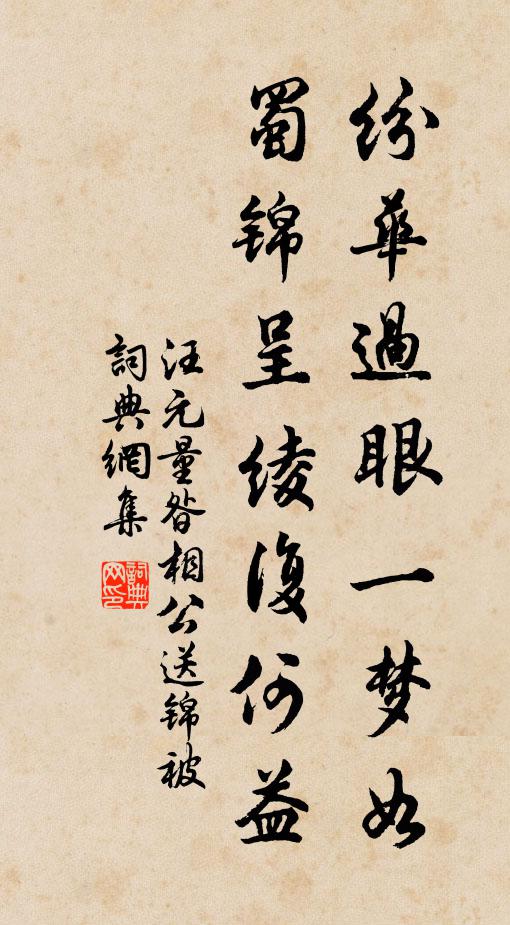 纷華過眼一梦如
蜀锦呈绫復何益
汪元量昝相公送锦被
詞典網集
詞典网印